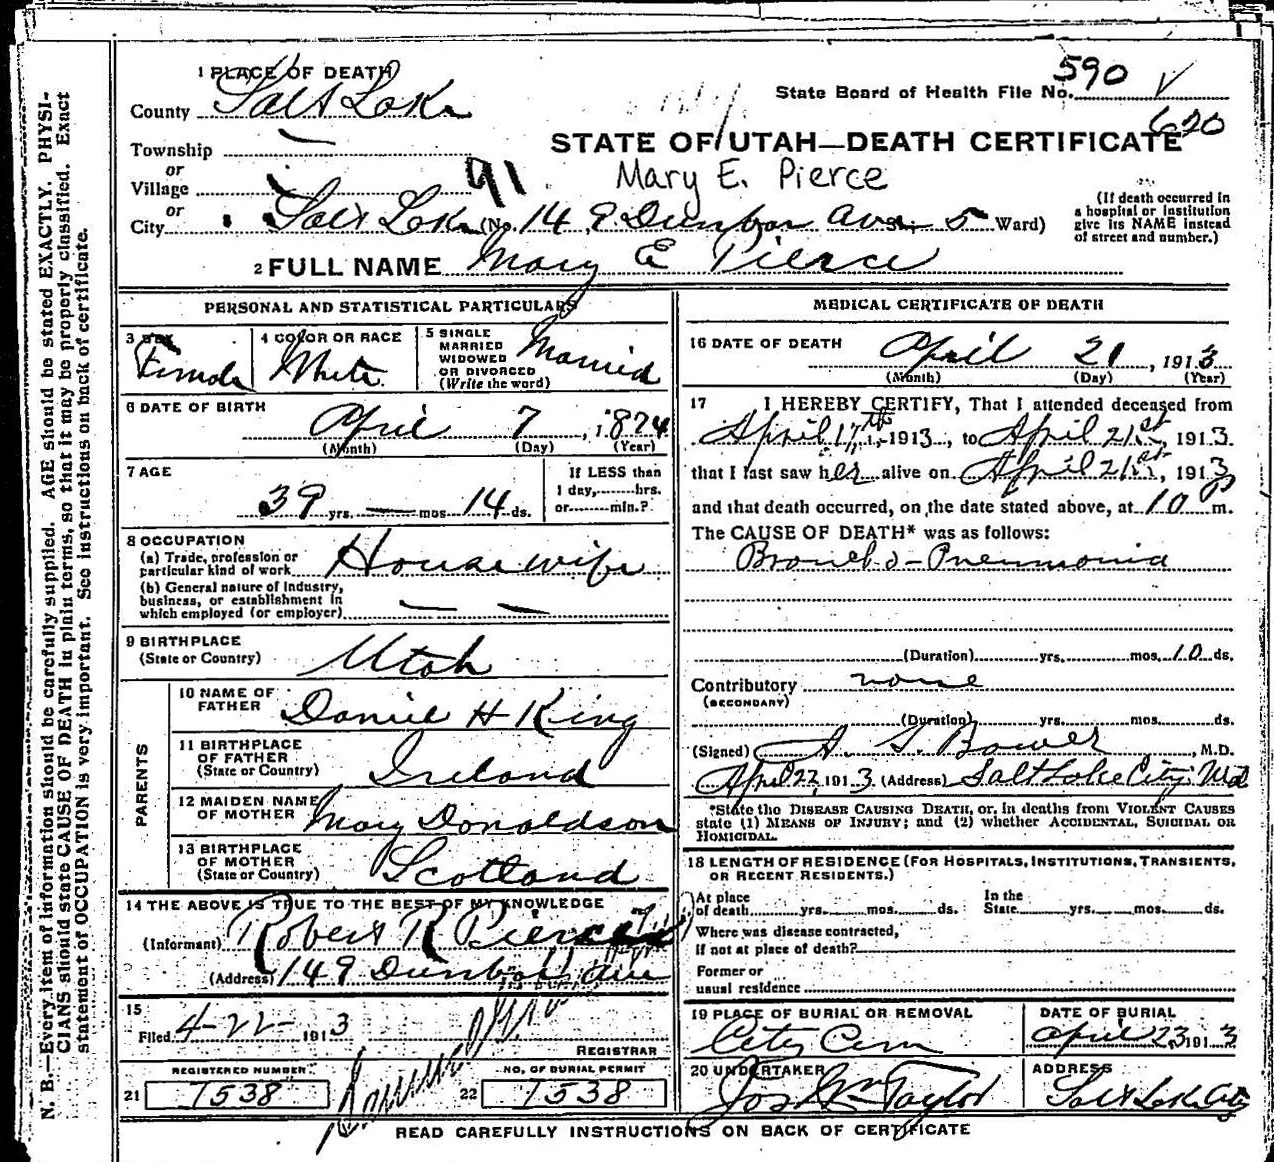 1 PLACE OF DEATH
590
County Salt Lake
State Board of Health File No.
620
Township —
STATE OF UTAH—DEATH CERTIFICATE
or
Village
91
Mary E. Pierce
or
City Salt Lake (No. 14 9 Dunbar Ave St. 5 Ward)
(If death occurred in
a hospital or institution
give its NAME instead
of street and number.)
2 FULL NAME Mary E Pierce
PERSONAL AND STATISTICAL PARTICULARS
3 SEX
Female
4 COLOR OR RACE
White
5 SINGLE
MARRIED
WIDOWED
OR DIVORCED
(Write the word)
Married
6 DATE OF BIRTH
April 7, 1874
(Month) (Day) (Year)
7 AGE
39 yrs. — mos 14 ds.
If LESS than
1 day, hrs.
or min.?
8 OCCUPATION
(a) Trade, profession or
particular kind of work Housewife
(b) General nature of Industry,
business, or establishment in
which employed (or employer) — —
9 BIRTHPLACE
(State or Country) Utah
PARENTS
10 NAME OF
FATHER Daniel H King
11 BIRTHPLACE
OF FATHER
(State or Country) Ireland
12 MAIDEN NAME
OF MOTHER Mary Donaldson
13 BIRTHPLACE
OF MOTHER
(State or Country) Scotland
14 THE ABOVE IS TRUE TO THE BEST OF MY KNOWLEDGE
(Informant) Robert R Pierce
(Address) 149 Dunbar Ave
15
Filed 4-22- 1913
REGISTRAR
REGISTERED NUMBER
21 1538
NO. OF BURIAL PERMIT
22 1538
MEDICAL CERTIFICATE OF DEATH
16 DATE OF DEATH
April 21, 1913
(Month) (Day) (Year)
17 I HEREBY CERTIFY, That I attended deceased from
April 17th, 1913, to April 21st, 1913
that I last saw her alive on April 21st, 1913
and that death occurred, on the date stated above, at 10 P m.
The CAUSE OF DEATH* was as follows:
Broncho-Pneumonia
(Duration) yrs. mos. 10 ds.
Contributory none
(SECONDARY)
(Duration) yrs. mos. ds.
(Signed) Bower, M.D.
April 22, 1913 (Address) Salt Lake City
*State the DISEASE CAUSING DEATH, or, in deaths from VIOLENT CAUSES
state (1) MEANS OF INJURY; and (2) whether ACCIDENTAL, SUICIDAL OR
HOMICIDAL.
18 LENGTH OF RESIDENCE (FOR HOSPITALS, INSTITUTIONS, TRANSIENTS,
OR RECENT RESIDENTS.)
At place
of death yrs. mos. ds.
In the
State yrs. mos. ds.
Where was disease contracted,
if not at place of death?
Former or
usual residence
19 PLACE OF BURIAL OR REMOVAL
City Cem
DATE OF BURIAL
April 23, 1913
20 UNDERTAKER
Jos Wm Taylor
ADDRESS
Salt Lake City
READ CAREFULLY INSTRUCTIONS ON BACK OF CERTIFICATE
N. B.—Every item of information should be carefully supplied. AGE should be stated EXACTLY. PHYSI-
CIANS should state CAUSE OF DEATH in plain terms, so that it may be properly classified. Exact
statement of OCCUPATION is very important. See instructions on back of certificate.